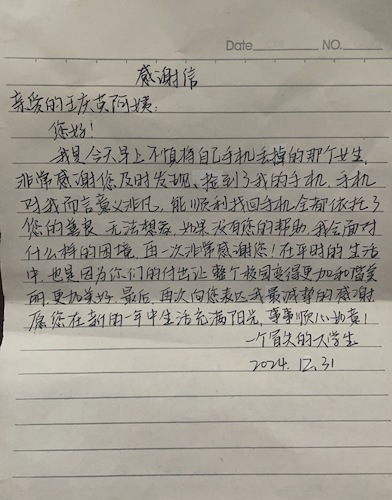 Date NO.
感谢信
亲爱的王庆英阿姨:
您好!
我是今天早上不慎将自己手机丢掉的那个女生,
非常感谢您及时发现、捡到了我的手机,手机
对我而言意义非凡,能顺利找回手机全都依托了
您的善良,无法想象,如果没有您的帮助,我会面对
什么样的困境,再一次非常感谢您!在平时的生活
中,也是因为你们的付出让整个校园变得更加和谐美
丽,更加美好,最后,再次向您表达我最诚挚的感谢,
愿您在新的一年中生活充满阳光,事事顺心如意!
一个冒失的大学生
2024.12.31